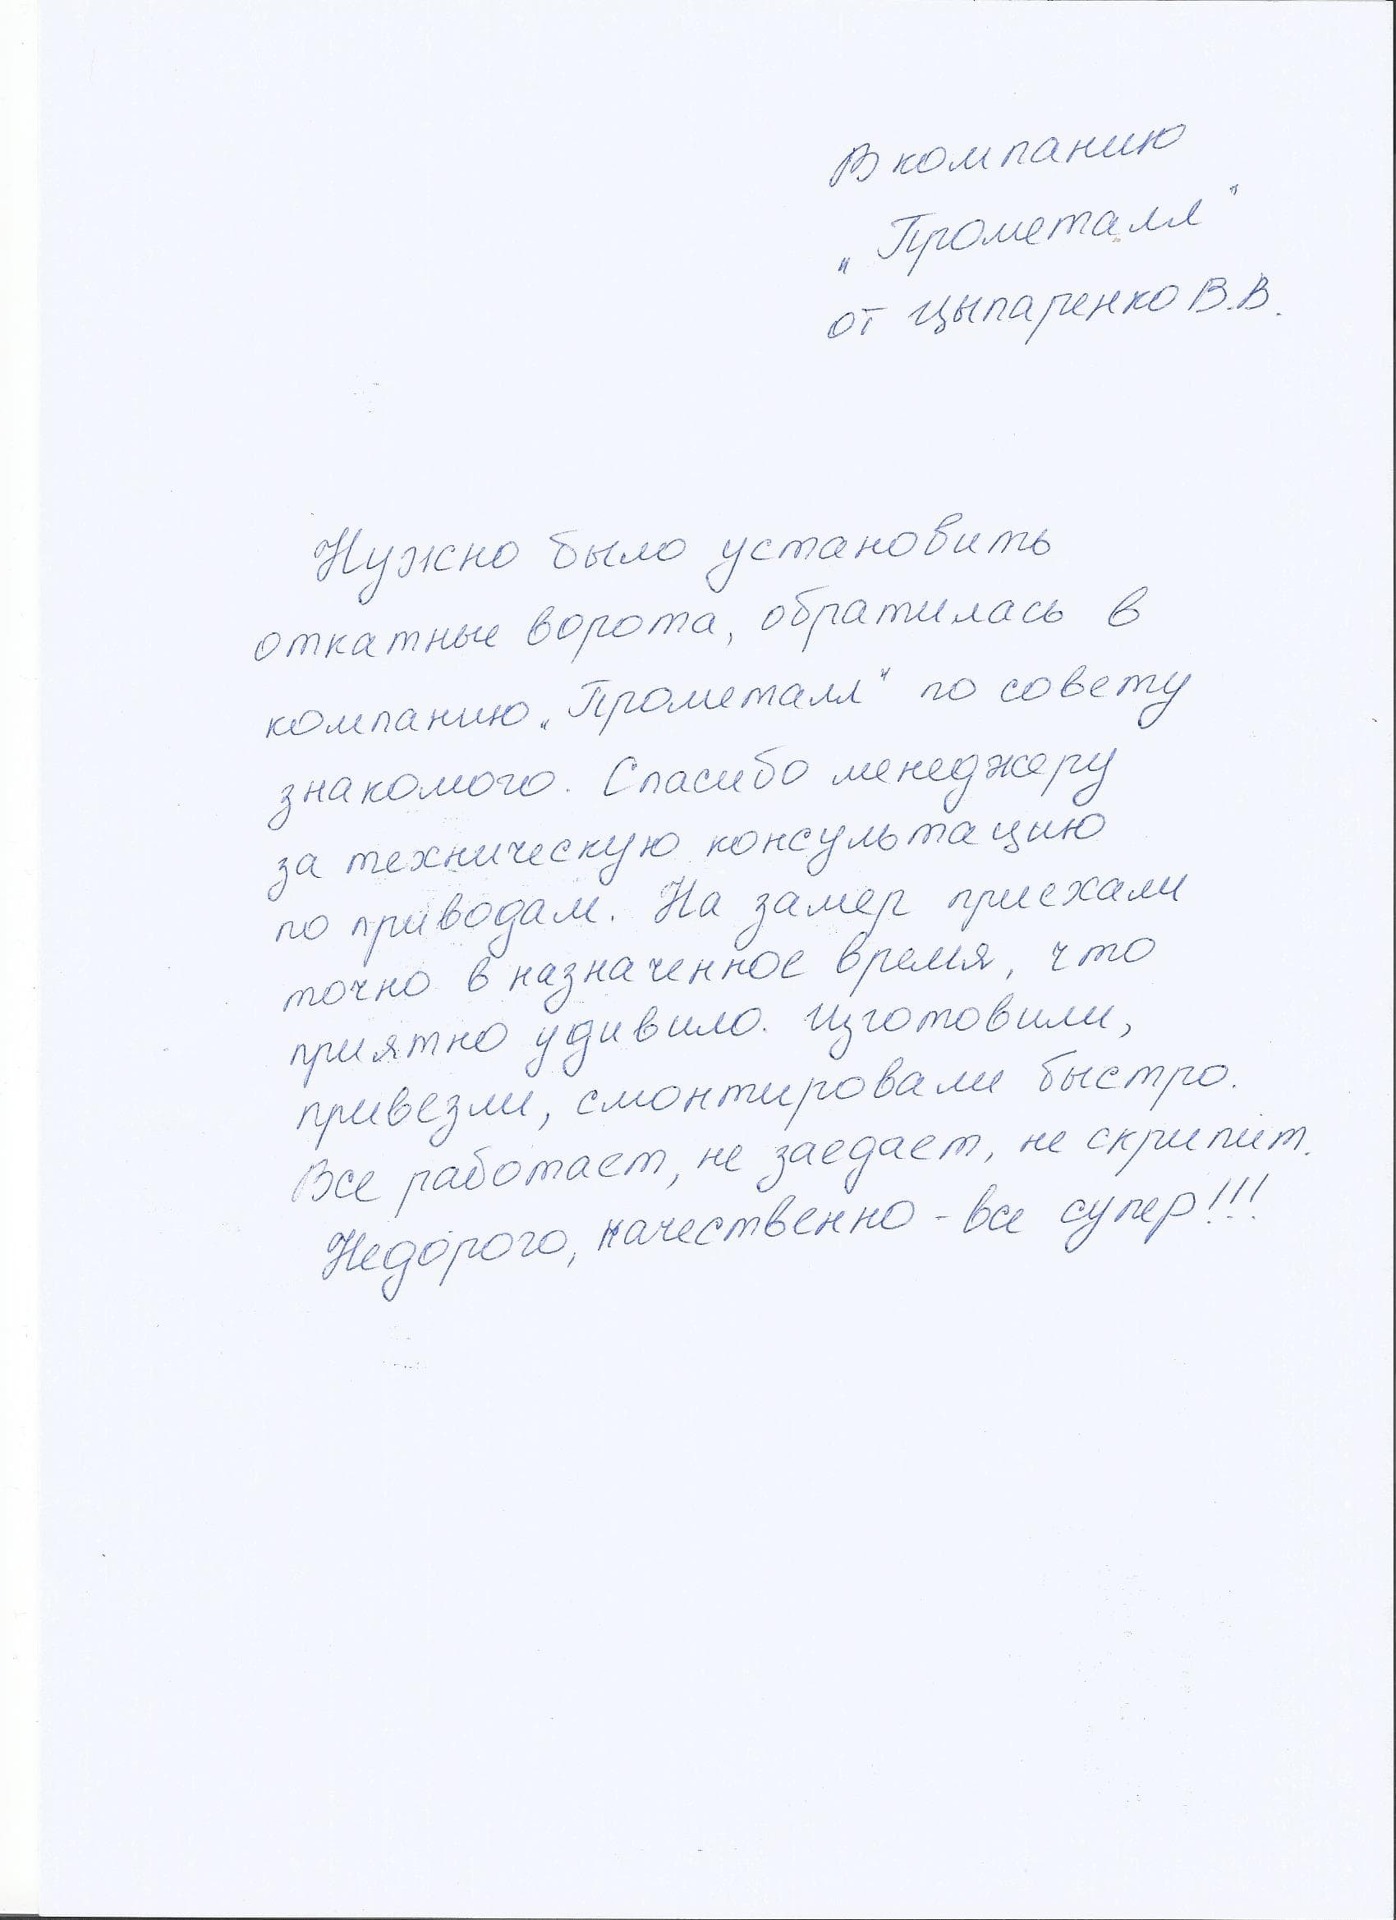 В компанию
„Прометалл"
от Цыпаренко В.В.
Нужно было установить
откатные ворота, обратилась в
компанию „Прометалл" по совету
знакомого. Спасибо менеджеру
за техническую консультацию
по приводам. На замер приехали
точно в назначенное время, что
приятно удивило. Изготовили,
привезли, смонтировали быстро.
Все работает, не заедает, не скрипит.
Недорого, качественно - все супер!!!